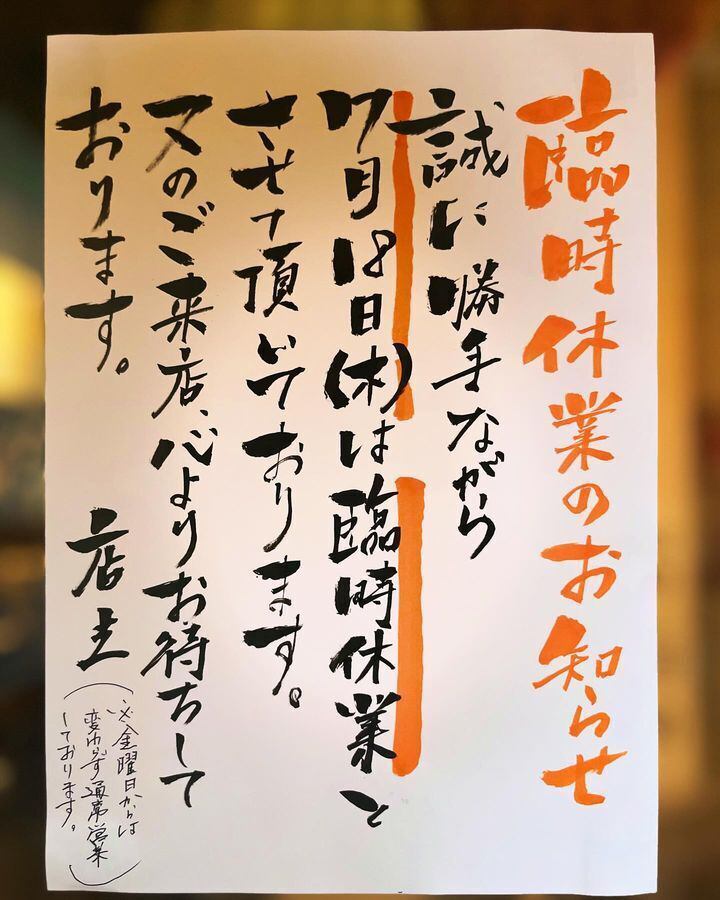 臨時休業のお知らせ
誠に勝手ながら
7月18日(木)は臨時休業と
させて頂いております。
又のご来店、心よりお待ちして
おります。
店主
(※金曜日からは
変わらず通常営業
しております。)